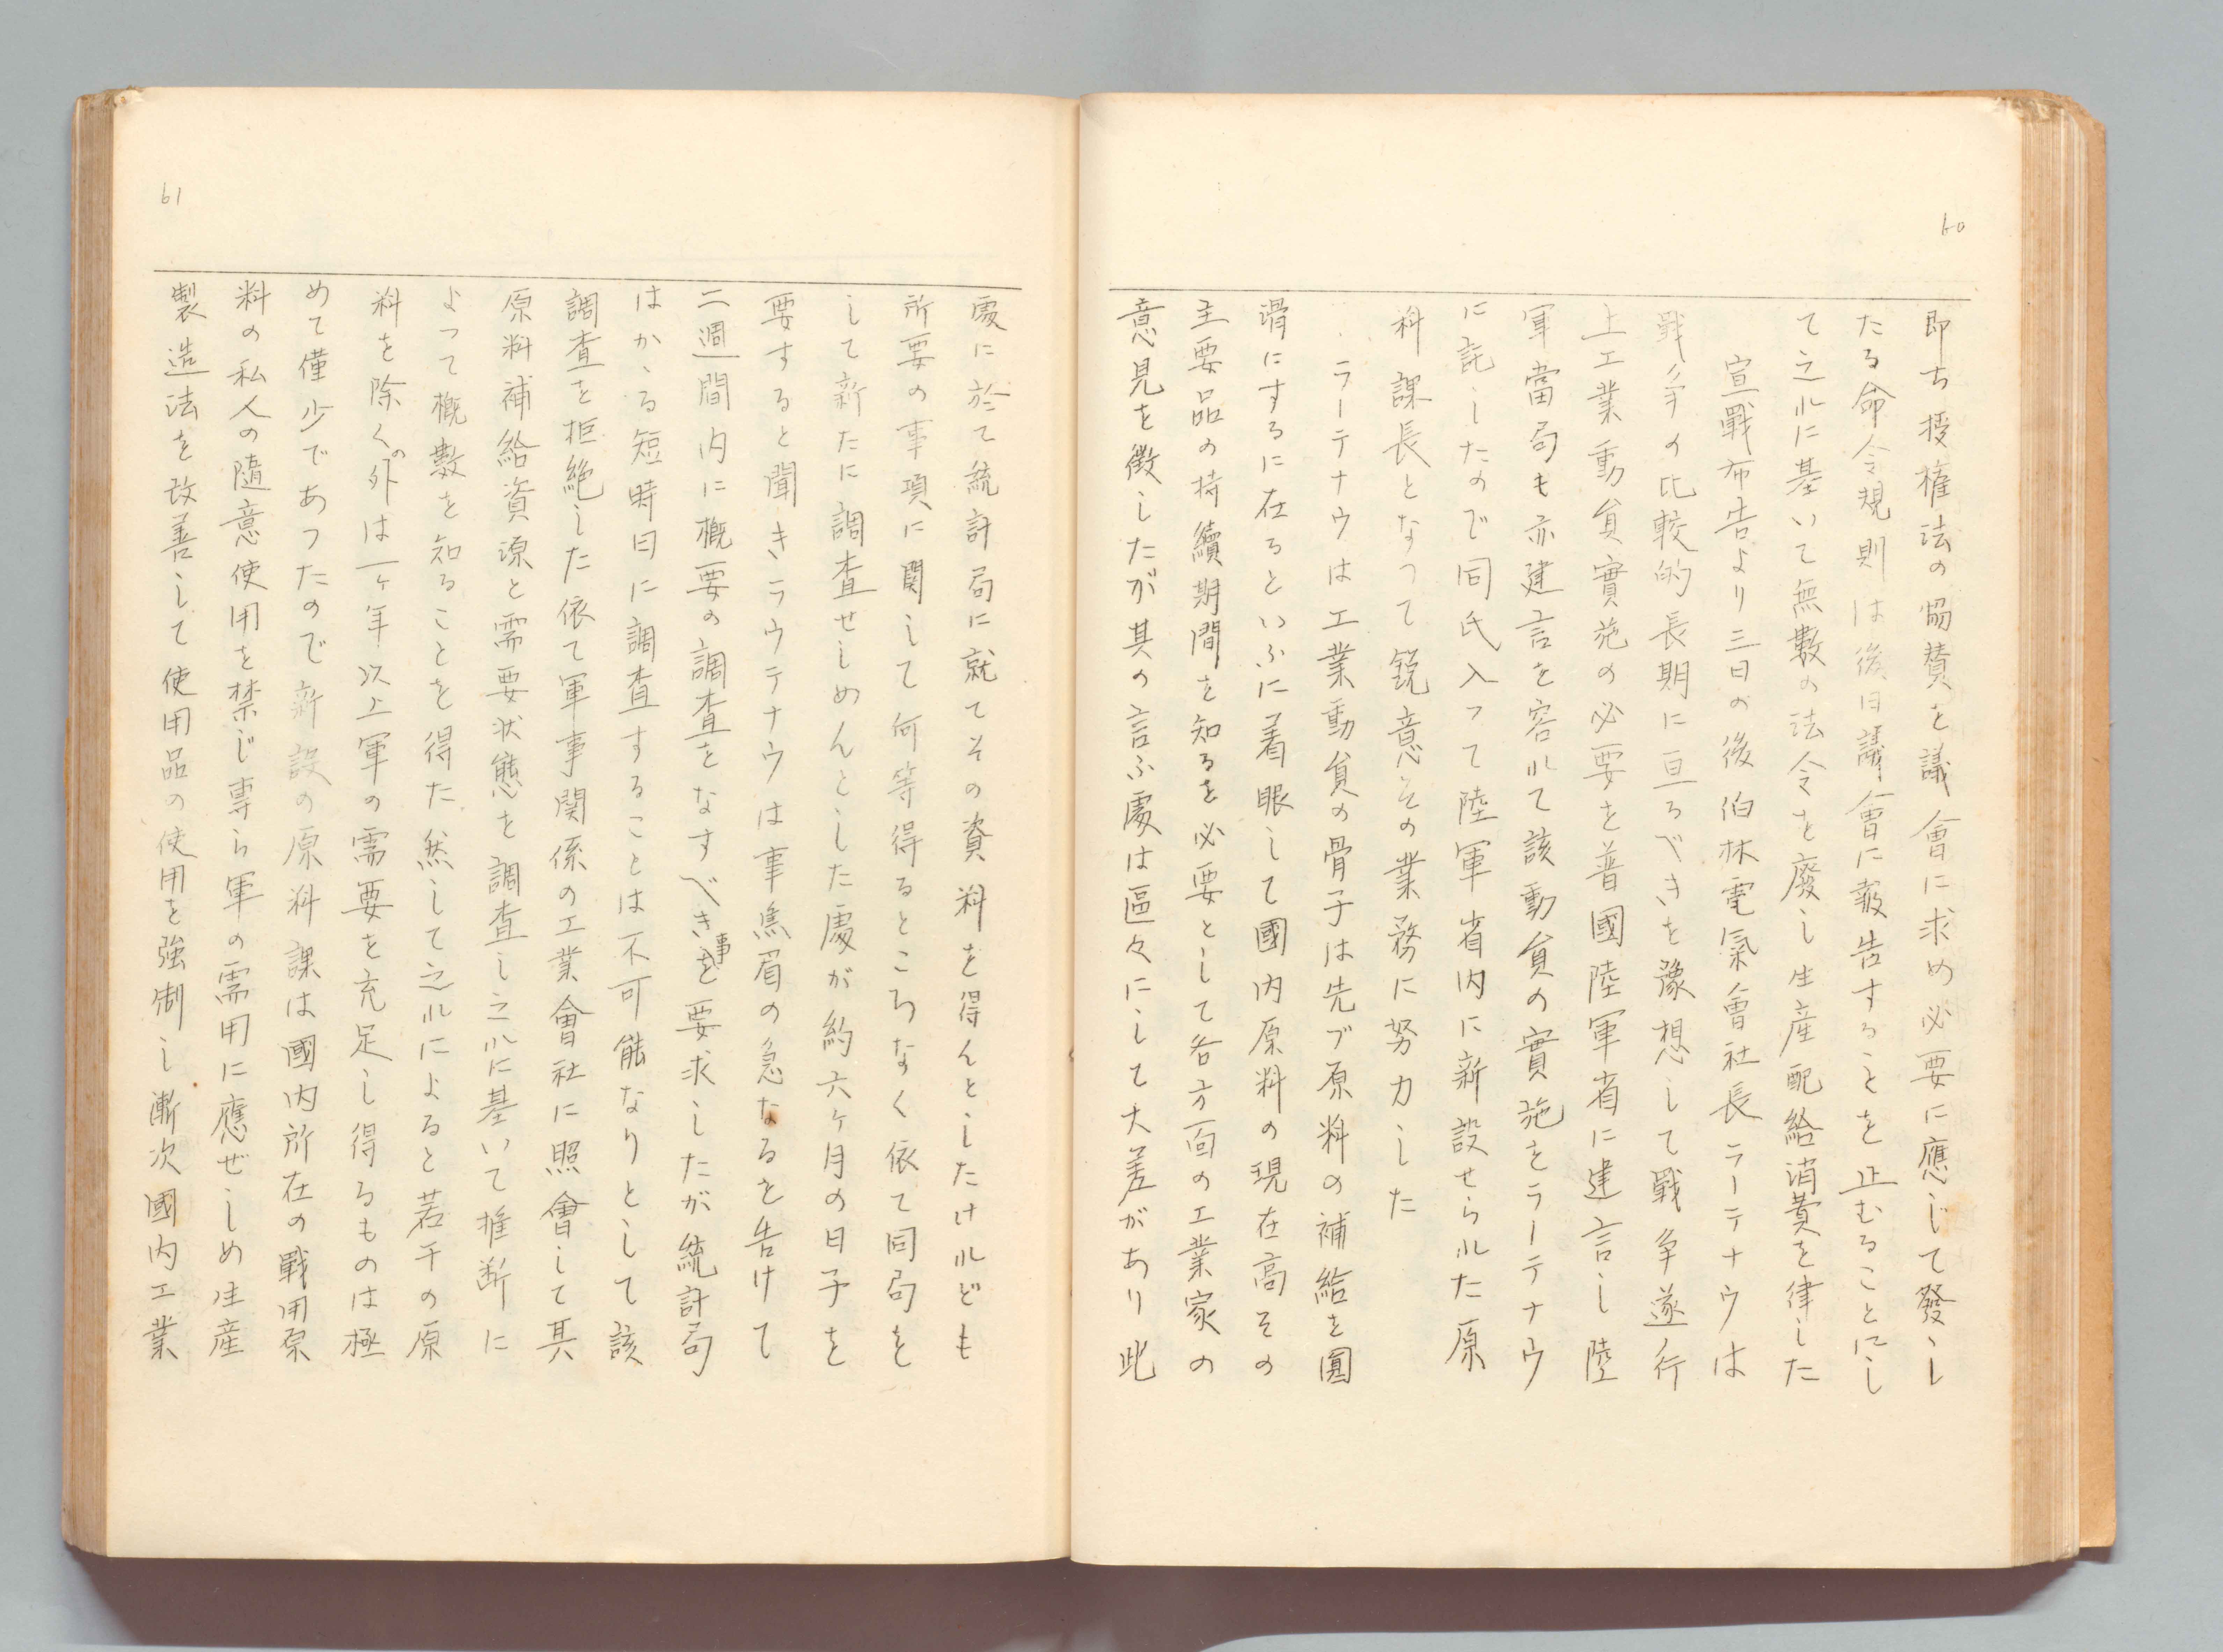 60
即ち授権法の協賛を議會に求め必要に應じて發し
たる命令規則は後日議會に報告することを止むることにし
て之れに基いて無數の法令を廢し生産配給消費を律した
宣戰布告より三日の後伯林電氣會社長ラーテナウは
戰争の比較的長期に亘るべきを豫想して戰争遂行
上工業動員實施の必要を普國陸軍省に建言し陸
軍當局も亦建言を容れて該動員の實施をラーテナウ
に託したので同氏入つて陸軍省内に新設せられた原
料課長となつて鋭意その業務に努力した
ラーテナウは工業動員の骨子は先づ原料の補給を圓
滑にするに在るといふに着眼して國内原料の現在高その
主要品の持續期間を知るを必要として各方面の工業家の
意見を徴したが其の言ふ處は區々にして大差があり此
61
處に於て統計局に就てその資料を得んとしたけれども
所要の事項に関して何等得るところなく依て同局を
して新たに調査せしめんとした處が約六ヶ月の日子を
要すると聞きラウテナウは事焦眉の急なるを告けて
二週間内に概要の調査をなすべき事を要求したが統計局
はかゝる短時日に調査することは不可能なりとして該
調査を拒絶した依て軍事関係の工業會社に照會して其
原料補給資源と需要状態を調査し之れに基いて推断に
よつて概數を知ることを得た然して之れによると若干の原
料を除くの外は一ヶ年以上軍の需要を充足し得るものは極
めて僅少であつたので新設の原料課は國内所在の戰用原
料の私人の隨意使用を禁じ専ら軍の需用に應ぜしめ生産
製造法を改善して使用品の使用を強制し漸次國内工業